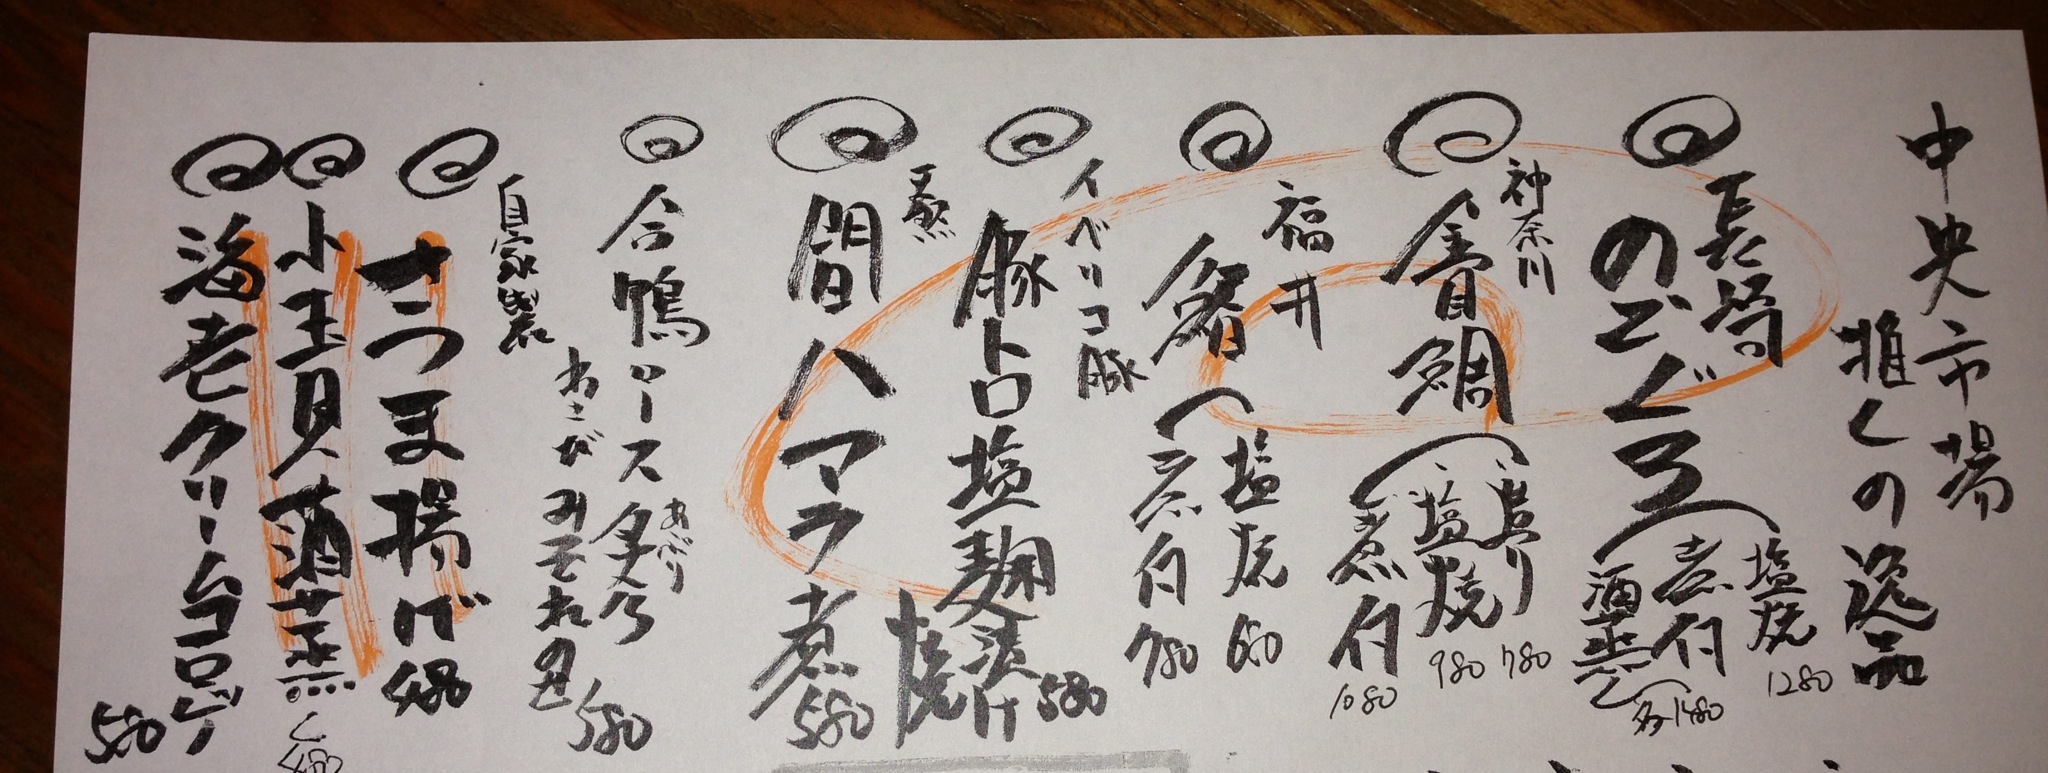 中央市場
推しの逸品
長崎
のどぐろ
塩焼 1280
煮付
酒蒸し 各1480
神奈川
金目鯛
炙り 780
塩焼 980
煮付 1080
福井
塩焼 680
煮付 780
イベリコ豚
豚トロ塩麹漬け焼 580
間八マラ煮 580
合鴨ロース炙り 580
あぶり
自家製
さつま揚げ 480
小玉貝酒蒸し 480
海老クリームコロッケ 580